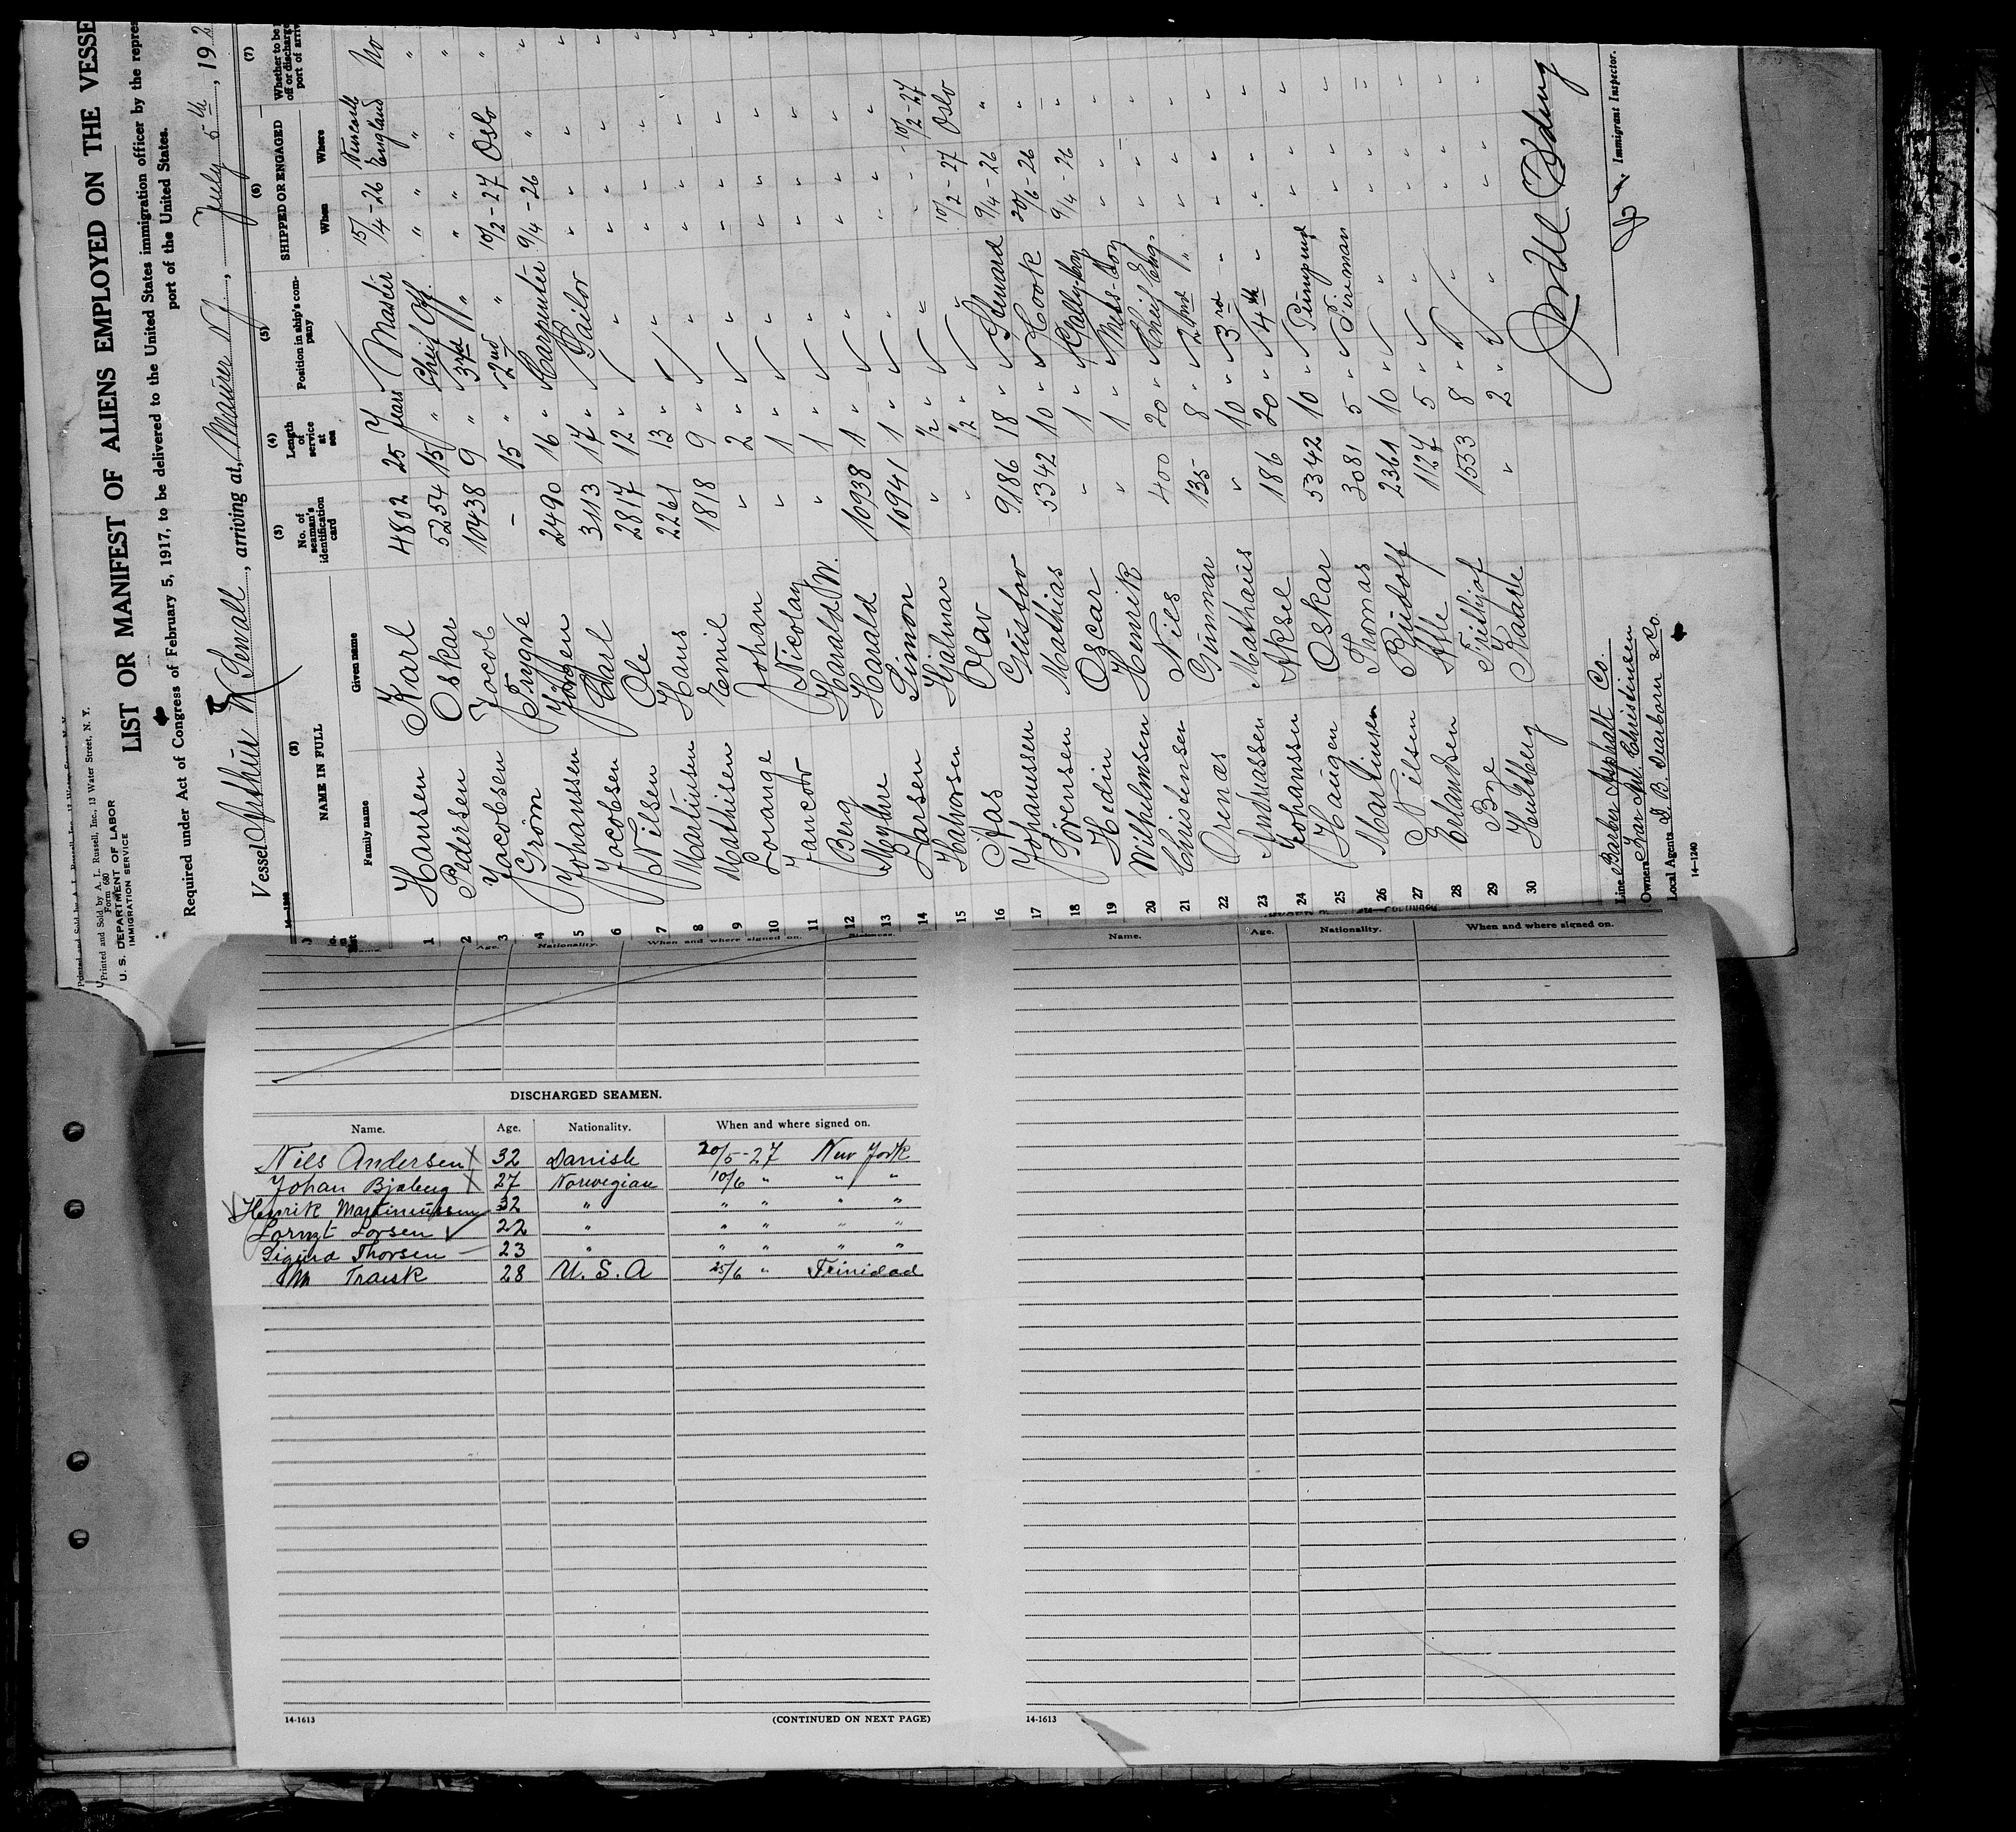 Printed and Sold by A. L. Russell, Inc., 13 Water Street, N. Y.
Form 680
U. S. DEPARTMENT OF LABOR
IMMIGRATION SERVICE
LIST OR MANIFEST OF ALIENS EMPLOYED ON THE VESSE
Required under Act of Congress of February 5, 1917, to be delivered to the United States immigration officer by the repre
port of the United States.
Vessel Arthur W Sewall, arriving at, Maurer N.J., July 5th, 192
(2) (3) (4) (5) (6) (7)
NAME IN FULL
Family name Given name
No. of seaman's identification card
Length of service at sea
Position in ship's company
SHIPPED OR ENGAGED
When Where
Whether to be off or discharge port of arriv
1 Hansen Karl 4802 25 Years Master 15/4-26 England No
2 Pedersen Oskar 5254 15 " Cheif Off. " " "
3 Jacobsen Jacob 10438 9 " 3rd " " " "
4 Grøm Yngve - 15 " 2nd " 10/2-27 Oslo "
5 Johanssen Jörgen 2490 16 " Carpenter 9/4-26 " "
6 Jacobsen Carl 3113 17 " Sailor " " "
7 Nilsen Ole 2817 12 " " " " "
8 Martinsen Hans 2261 13 " " " " "
9 Mathisen Emil 1818 9 " " " " "
10 Lorange Johan " 2 " " " " "
11 Jancov Nicolay " 1 " " " " "
12 Berg Harald W. " 1 " " " " "
13 Harald 10938 1 " " " " "
14 Larsen Simon 10941 1 " " " 10/2-27
15 Halvorsen Hialmar " 1/2 " " 10/2-27 Oslo
16 Aas Olav " 1/2 " " 9/4-26 "
17 Johanssen Gustav 9186 18 " Steward 20/6-26 "
18 Sörensen Mathias 5342 10 " Cook 9/4-26 "
19 Hedin Oscar " 1 " Gally-boy " "
20 Wilhelmsen Henrik " 1 " Mess-boy " "
21 Christensen Nils 400 20 " Cheif Eng. " "
22 Orenæs Gunnar 135 8 " 2nd " " "
23 Andreassen Mathæus " 10 " 3rd " " "
24 Johanssen Aksel 186 20 " 4th " " "
25 Haugen Oskar 5342 10 " " "
26 Martinsen Thomas 3081 5 " Fireman " "
27 Nilsen Rudolf 2361 10 " " " "
28 Erlandsen Atle 1127 5 " " " "
29 Bye Frithjof 1553 8 " " " "
30 Hultberg Kaare " 2 " " " "
Line Barber Asphalt Co.
Owners Ivar An. Christensen
Local Agents D. B. Dearborn & Co.
Immigrant Inspector.
14-1240
Age. Nationality. When and where signed on.
Name. Age. Nationality. When and where signed on.
DISCHARGED SEAMEN.
Name. Age. Nationality. When and where signed on.
Nils Andersen 32 Danish 20/5-27 New York
Johan Bjøberg 27 Norwegian 10/6 " " "
Henrik Martinussen 32 " " " " "
Larnzt Lorsen 22 " " " " "
Sigurd Thorsen 23 " " " " "
M Trask 28 U.S.A 25/6 " Trinidad
14-1613 (CONTINUED ON NEXT PAGE)
14-1613